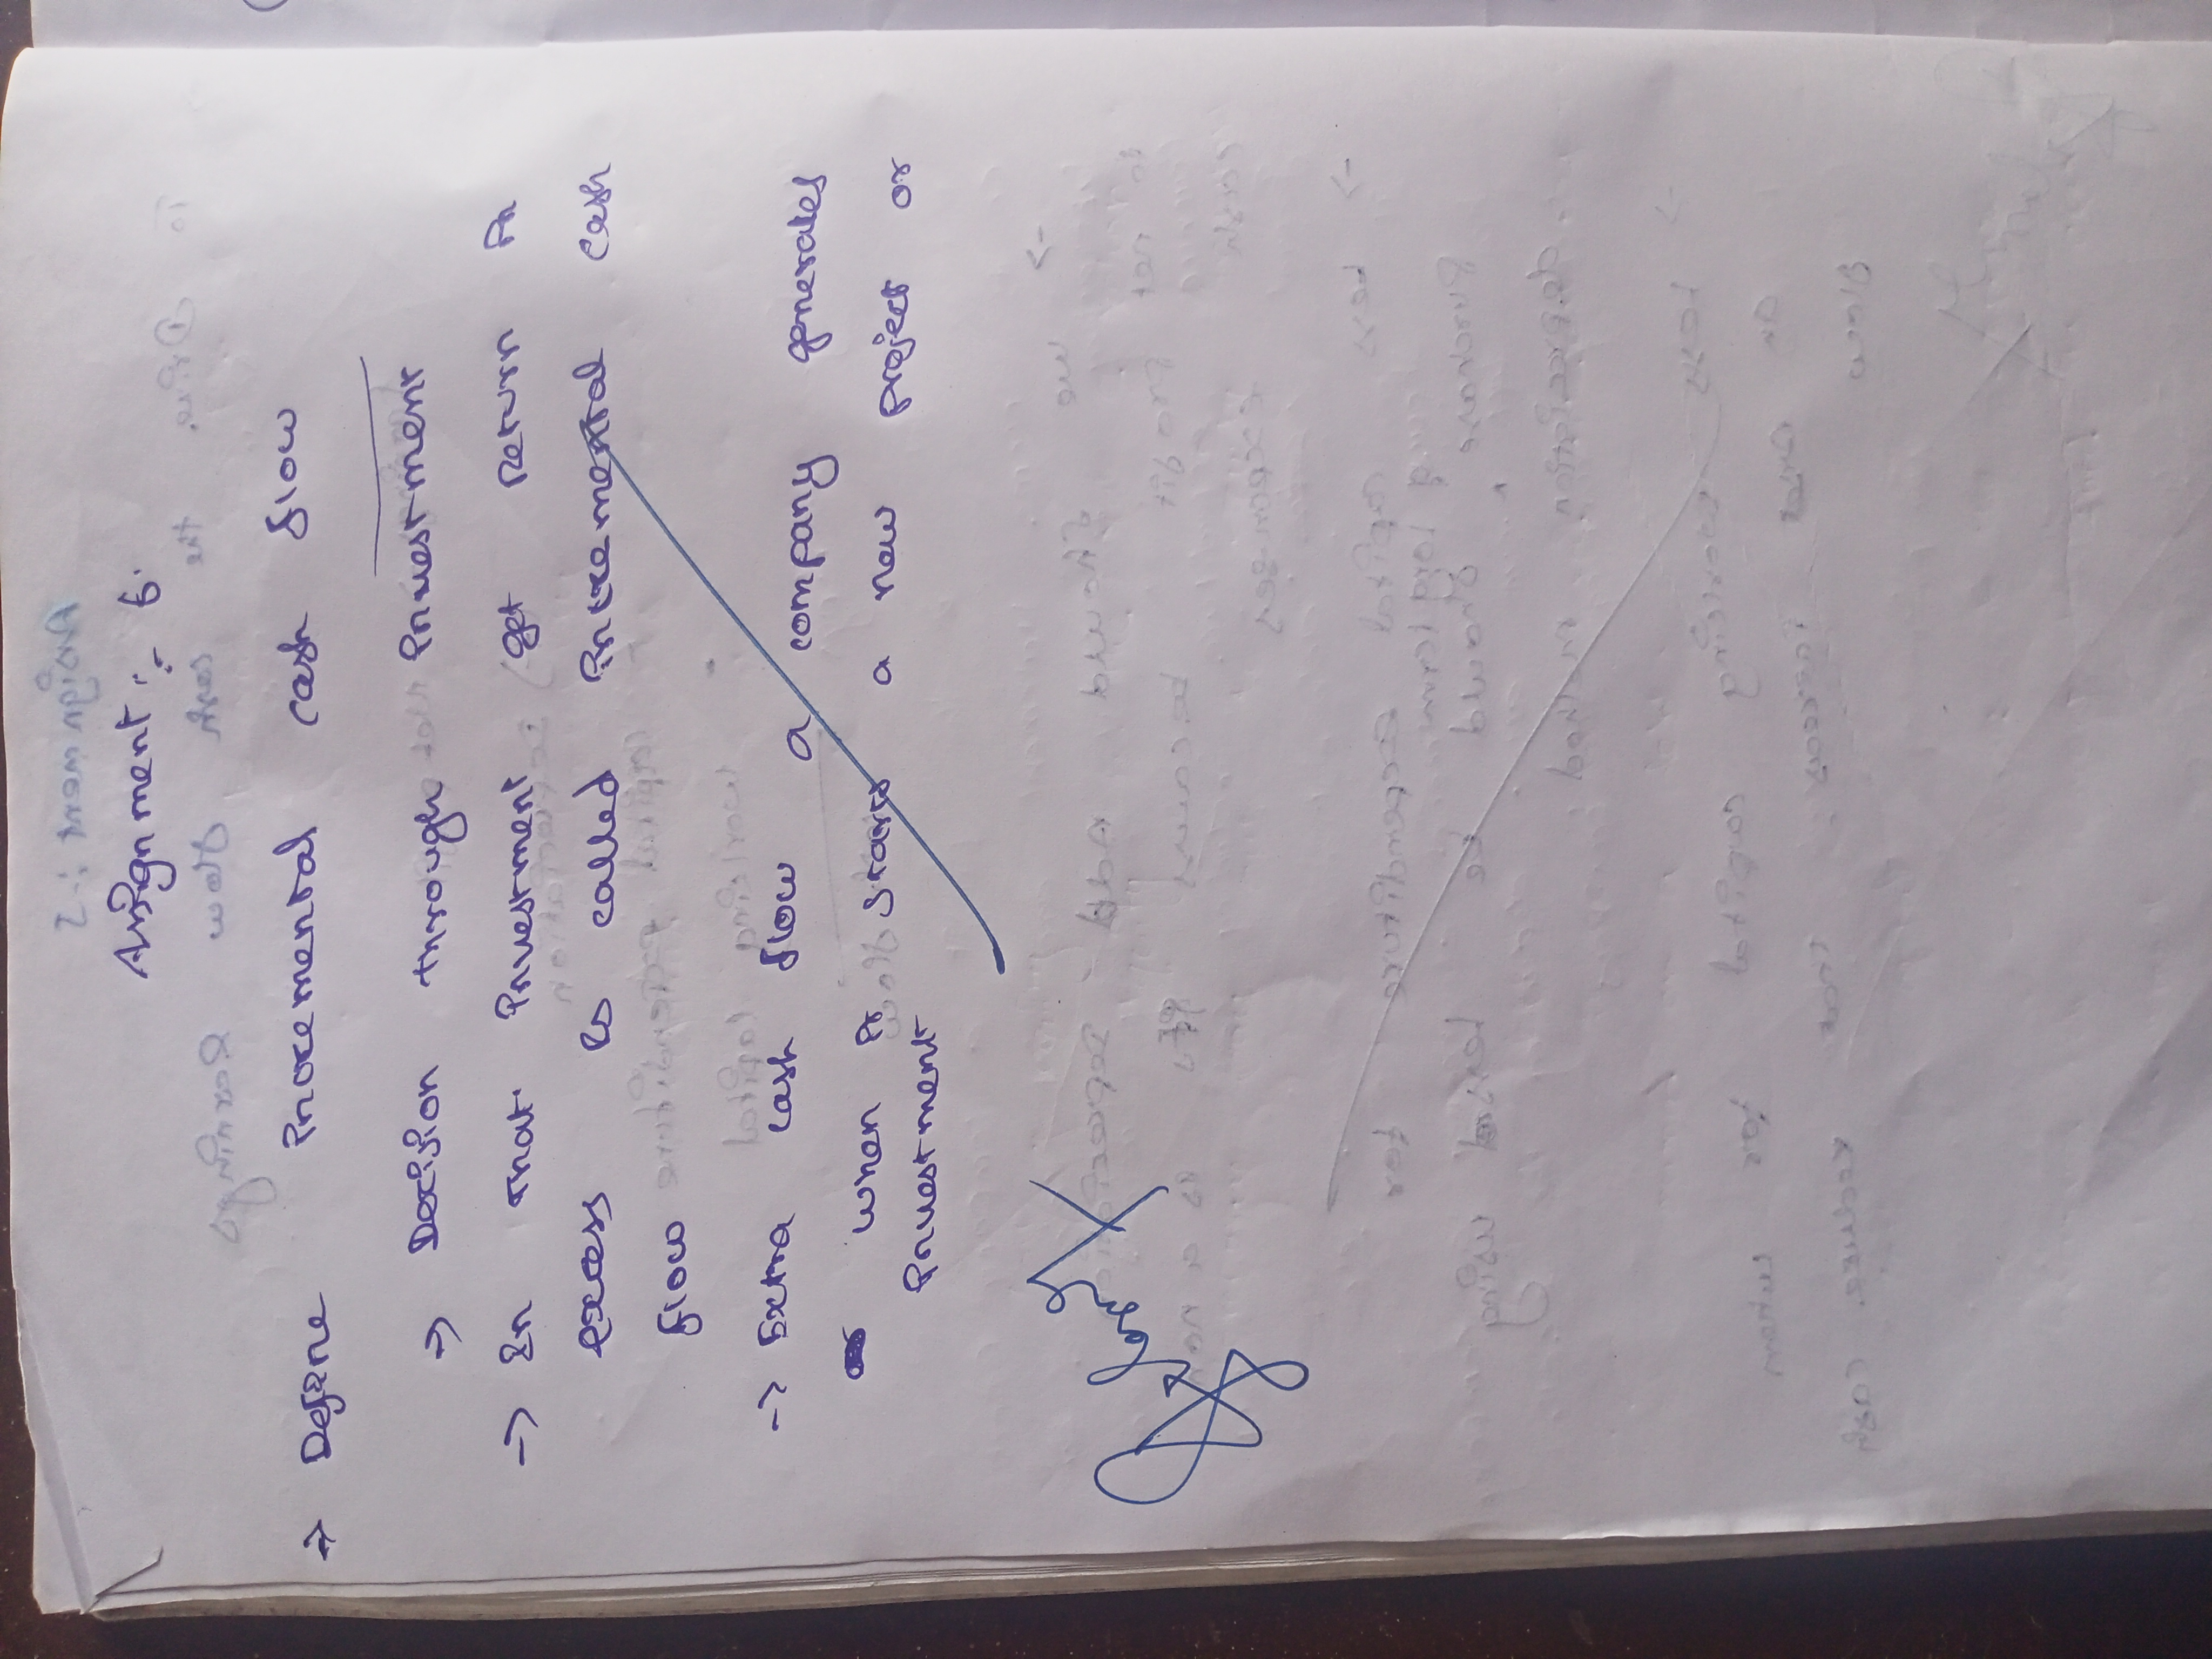 Assignment :- 6.
=> Define Incremental cash flow
-> Decision through Investment
-> In that Investment get Return in
excess is called Incremental cash
flow
-> Extra cash flow a company generates
when it starts a new project or
Investment